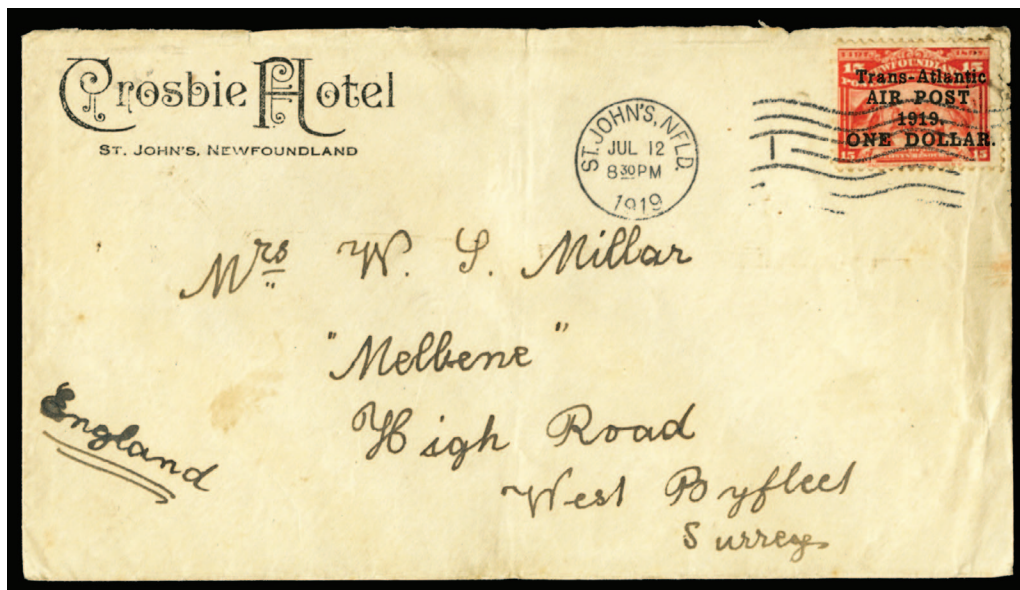 Crosbie Hotel
ST. JOHN'S, NEWFOUNDLAND
ST. JOHN'S, NFLD.
JUL 12
8 30 PM
1919
15 NEWFOUNDLAND 15
Trans-Atlantic
AIR POST
1919.
ONE DOLLAR.
15 15
Mrs W. S. Millar
"Melbene"
High Road
West Byfleet
Surrey
England